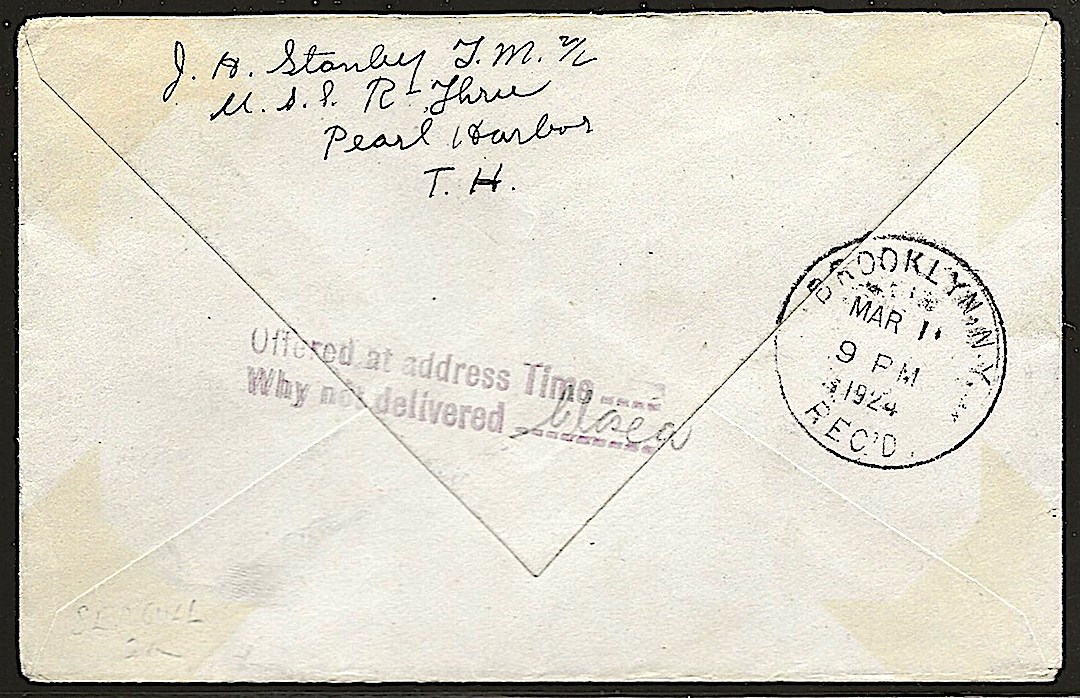 J. H. Stanley T.M. 2/c
U.S.S. R-Three
Pearl Harbor
T. H.
Offered at address Time
Why not delivered Closed
BROOKLYN, N.Y.
MAR
9 PM
1924
REC'D.
SEAGULL